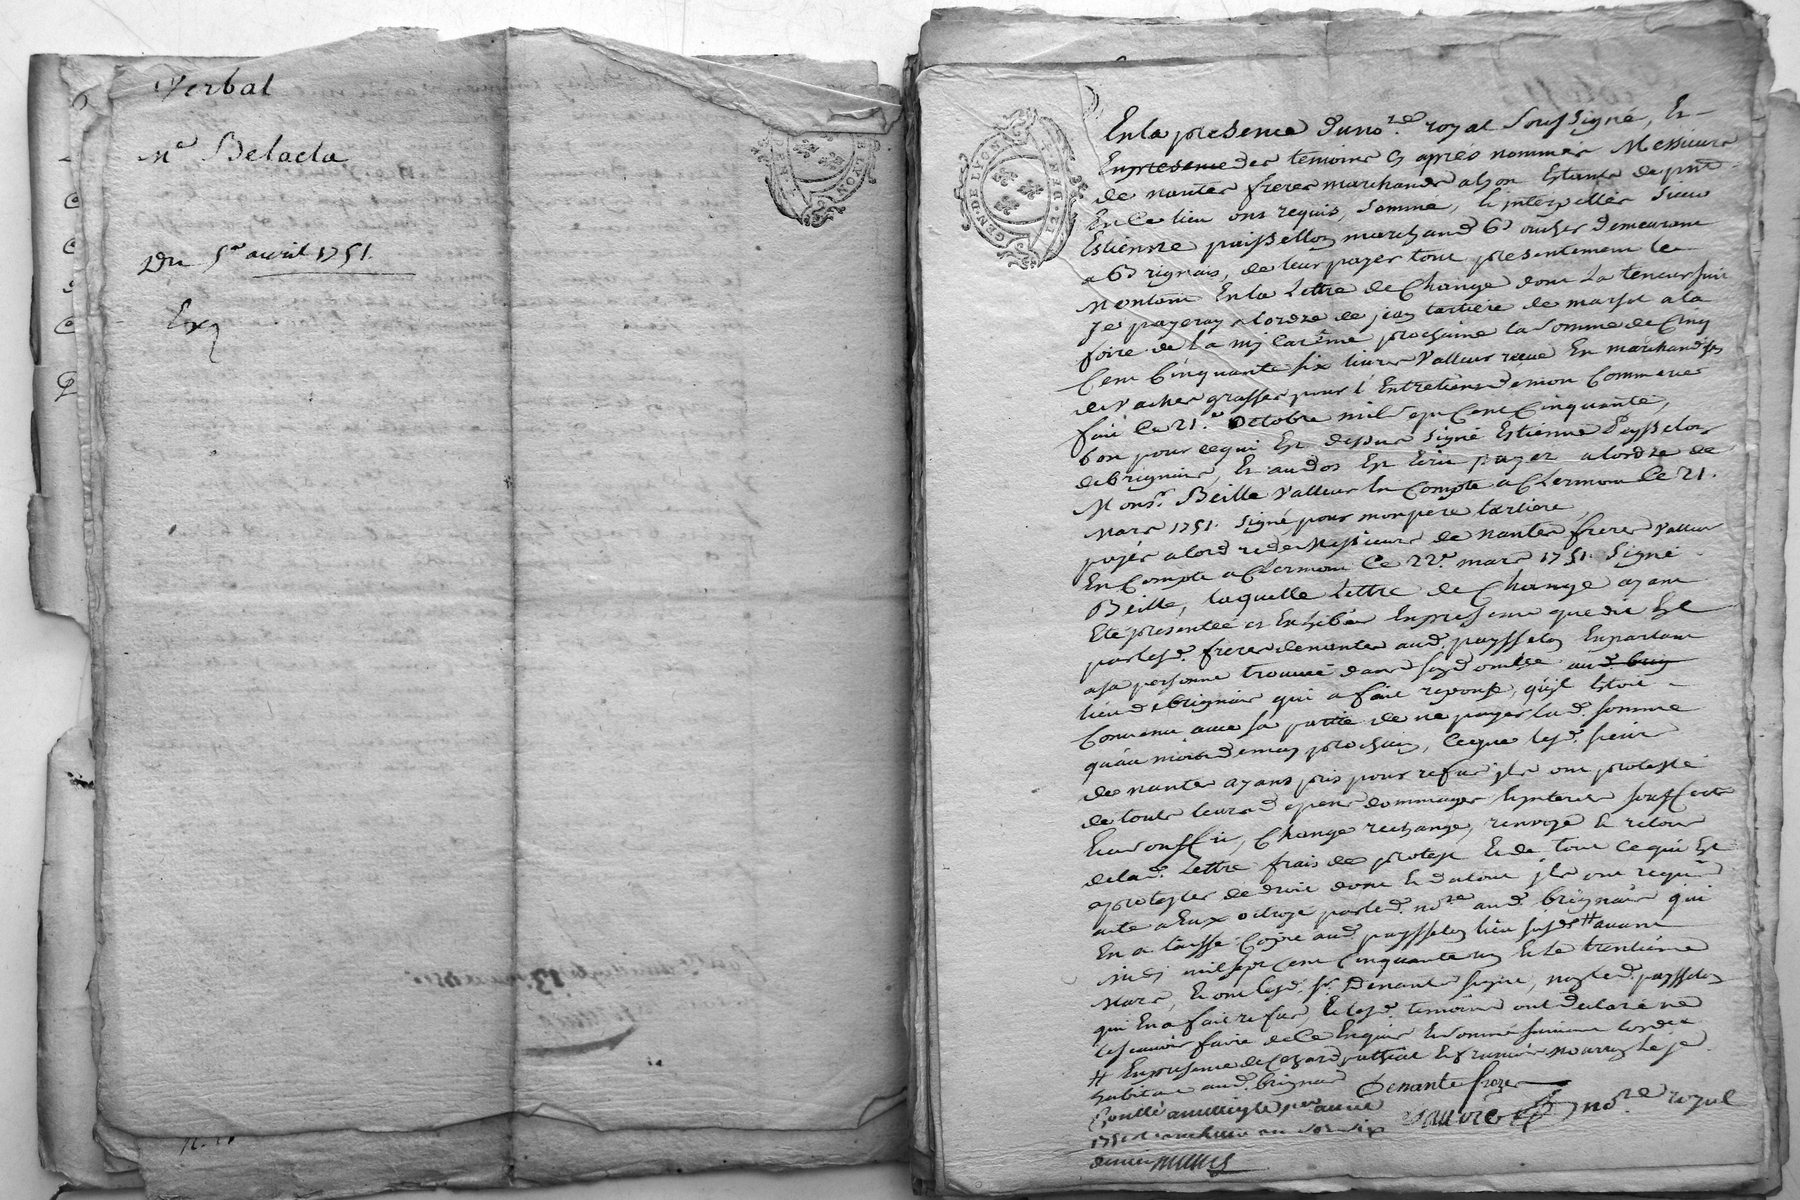 Verbal
Me Belacla
Du 5e avril 1751.
Exp
GEN. DE LYON
En la presence du nore. royal soussigné, Et
En presence des temoins cy aprés nommés Messieurs
de nantes freres marchands a lyon Estants de pnt
En ce lieu ont requis, sommé, & interpellés sieur
Estienne paisselloy marchand Boucher demeurant
a Brignais, de leur payer tout presentement le
Montant En la Lettre de Change dont La teneur suit
Je payeray a lordre de jean tartiere de marsat a la
foire de la my Careme prochaine la somme de Cinq
Cent Cinquante six livres valleur receue En marchandises
de vaches grasses pour l'Entretiens de mon Commerce
fait Ce 21e. Octobre mil sept Cent Cinquante,
bon pour ce qui Est dessus signé Estienne Paysselon
de brignais, Et au dos Est Ecrit payez a lordre de
Monsr. Beille valleur En Compte a Clermont Ce 21.
Mars 1751. signé pour mon pere tartiere
payés a lordre de Messieurs de nantes freres valleur
En Compte a Clermont Ce 22e. mars 1751. Signé
Beille, laquelle lettre de Change ayant
Eté presentée et Exhibée En presence que dit Est
par lesd. freres de nantes aud. paysselon En parlant
a sa personne trouvée dans son domicile aud. brig
lieu de brignais qui a fait reponse, qu'il Estoit
Convenu avec sa partie de ne payer lad. somme
qu'au mois de may prochain, Ceque lesd. sieurs
de nantes ayants pris pour refus ils ont protesté
de touts leurs depens dommages & interets soufferts
Et a souffrir, Change rechange, renvoye & retour
de lad. Lettre frais de protest & de tout Ce qui Est
a protester de droit dont & du tout ils ont requis
acte a Eux octroyé par led. nore aud. brignais qui
En a laissé Copie aud. paysselon lieu susd. # avant
midi mil sept Cent Cinquante un & le trentième
Mars, & ont lesd. srs. Denante signé, non led. paysselon
qui En a fait refus, & lesd. temoins ont declaré ne
le scavoir faire de Ce Enquis Et sommé suivant lordce
# En presence de
habitant aud. brignais Denante freres
Conllé a avril
1751 nore royal